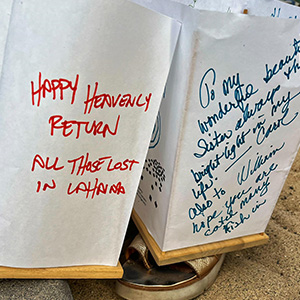 HAPPY HEAVENLY
RETURN
ALL THOSE LOST
IN LAHAINA
To my
wonderful beauti
Sister always the
bright light in my
life. Carol
also to William
hope you are
catching many
fish in